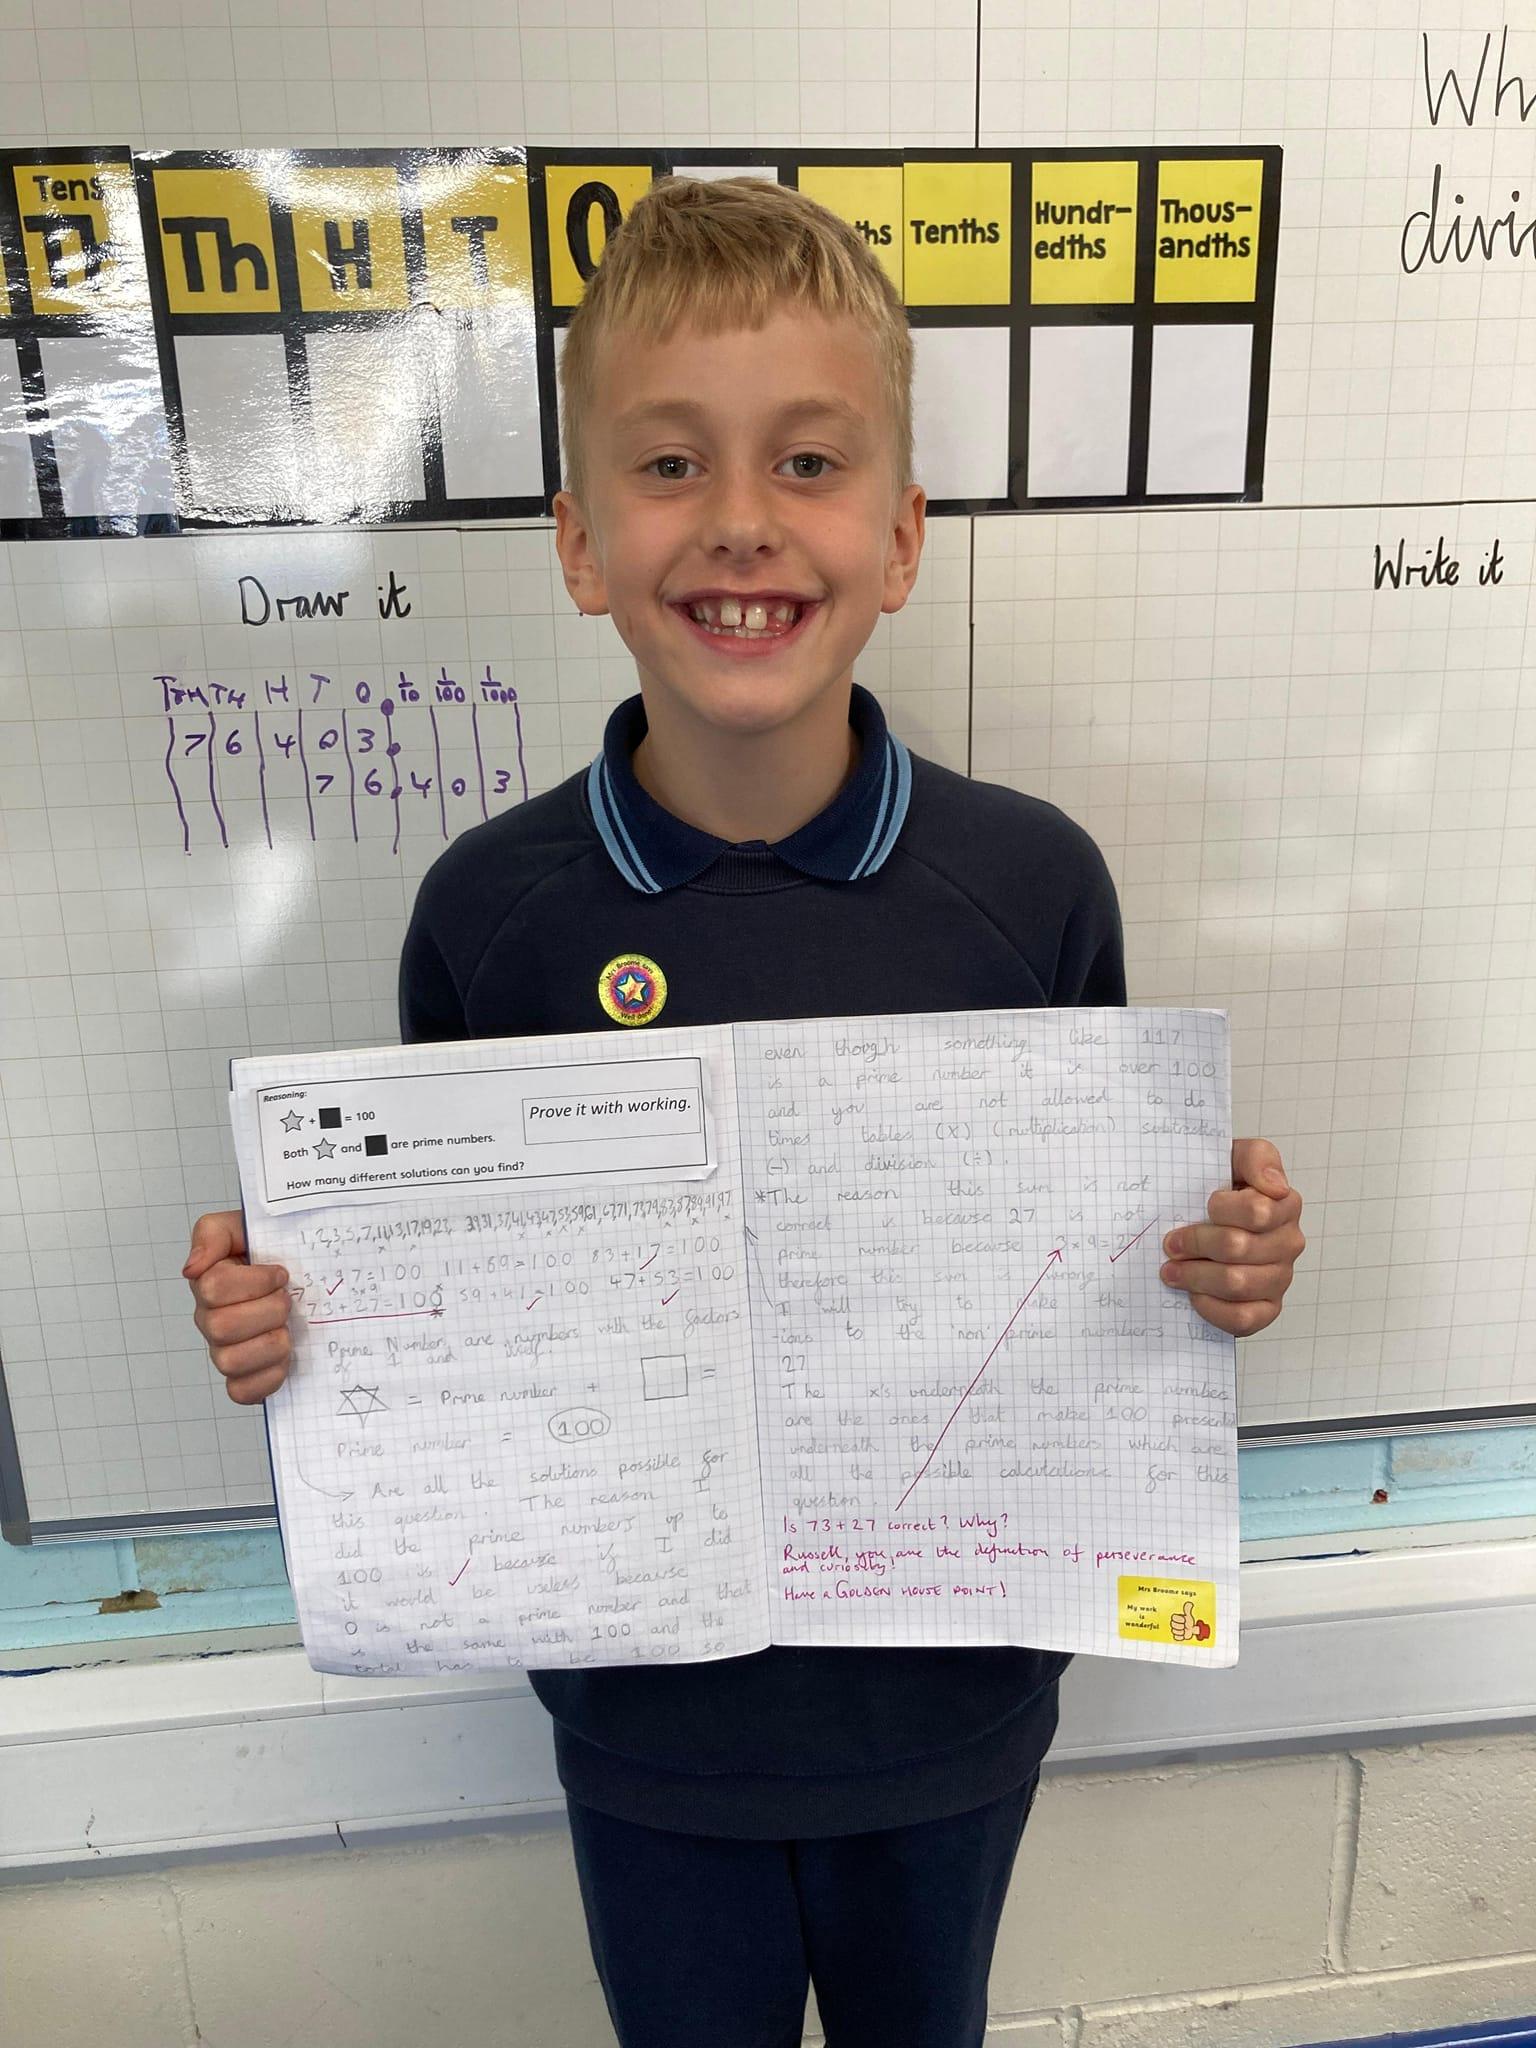 Wh
divi
Tens
TTh
Th
H
T
O
ths
Tenths
Hundr-
edths
Thous-
andths
Draw it
Write it
TTH TH H T O . 1/10 1/100 1/1000
7 6 4 0 3 .
7 6 . 4 0 3
Mrs Broome says
Well done!
Reasoning:
+ = 100
Both and are prime numbers.
How many different solutions can you find?
Prove it with working.
3+97=100 11+89=100 83+17=100
3×9
73+27=100 * 59+41=100 47+53=100
Prime Number are numbers with the factors
of 1 and itself.
= Prime number + =
Prime number = 100
Are all the solutions possible for
this question. The reason I
did the prime numbers up to
100 is because if I did
it would be useless because
0 is not a prime number and that
is the same with 100 and the
total has to be 100 so
even though something like 117
is a prime number it is over 100
and you are not allowed to do
times tables (X) (multiplication) subtraction
(-) and division (÷).
*The reason this sum is not
correct is because 27 is not a
prime number because 3×9=27
therefore this sum is wrong.
I will try to make the
-ions to the 'non' prime numbers like
27
The x's underneath the prime numbers
are the ones that make 100
underneath the prime numbers which are
all the possible calculations for this
question.
Is 73+27 correct? Why?
Russell, you are the definition of perseverance
and curiosity!
Have a GOLDEN HOUSE POINT!
Mrs Broome says
My work
is
wonderful